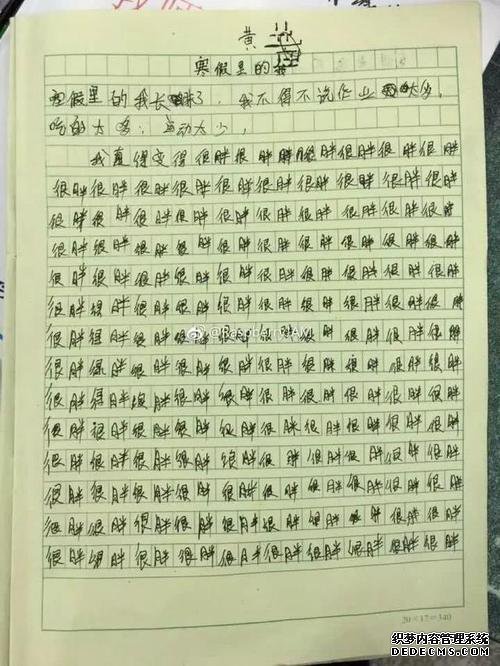 黄
寒假里的我
寒假里的我长胖了,我不得不说作业太多,
吃的太多,运动太少,
我真得变得很胖很胖胖很胖很胖很胖很胖
很胖很胖很胖很胖很胖很胖很胖很胖很胖很胖
很胖很胖很胖很胖很胖很胖很胖很胖很胖很胖
很胖很胖很胖很胖很胖很胖很胖很胖很胖很胖
很胖很胖很胖很胖很胖很胖很胖很胖很胖很胖
很胖很胖很胖很胖很胖很胖很胖很胖很胖很胖
很胖很胖很胖很胖 @Raspberry 胖很胖很胖很胖很胖
很胖很胖很胖很胖很胖很胖很胖很胖很胖很胖
很胖很胖很胖很胖很胖很胖很胖很胖很胖很胖
很胖很胖很胖很胖很胖很胖很胖很胖很胖很胖
很胖很胖很胖很胖很胖很胖很胖很胖很胖很胖
很胖很胖很胖很胖很胖很胖很胖很胖很胖很胖
很胖很胖很胖很胖很胖很胖很胖很胖很胖很胖
很胖很胖很胖很胖很胖很胖很胖很胖很胖很胖
20×17=340
织梦内容管理系统
DEDECMS.COM